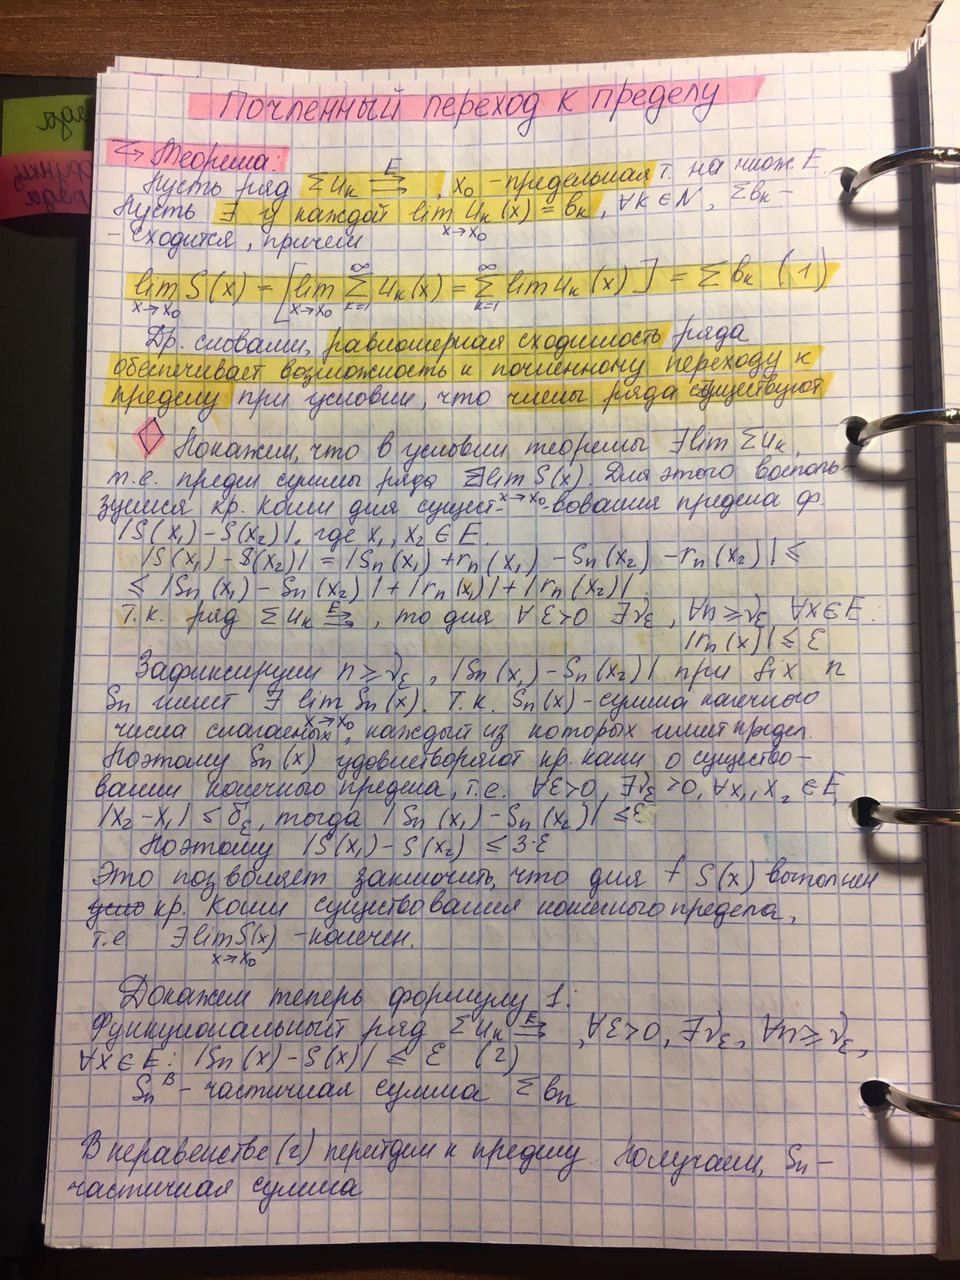 Почленный переход к пределу
Теорема:
Пусть ряд Σ uₖ ⇉ᴱ , x₀ - предельная т. на множ. E.
Пусть ∃ у каждой lim uₖ(x) = bₖ, ∀k ∈ N, Σbₖ -
x→x₀
- сходится, причем
lim S(x) = [lim Σ uₖ(x) = Σ lim uₖ(x)] = Σ bₖ (1)
x→x₀ x→x₀ k=1 ∞ k=1 ∞
Др. словами, равномерная сходимость ряда
обеспечивает возможность к почленному переходу к
пределу при условии, что члены ряда существуют
Покажем, что в условии теоремы ∃ lim Σuₖ,
т.е. предел суммы ряда ∃ lim S(x). Для этого восполь-
x→x₀
зуемся кр. Коши для сущест- -вования предела ф.
|S(x₁) - S(x₂)|, где x₁, x₂ ∈ E.
|S(x₁) - S(x₂)| = |Sₙ(x₁) + rₙ(x₁) - Sₙ(x₂) - rₙ(x₂)| ≤
≤ |Sₙ(x₁) - Sₙ(x₂)| + |rₙ(x₁)| + |rₙ(x₂)|
Т.к. ряд Σ uₖ ⇉ᴱ , то для ∀ ε>0 ∃ν_ε, ∀n≥ν_ε ∀x∈E:
|rₙ(x)| ≤ ε
Зафиксируем n ≥ ν_ε, |Sₙ(x₁) - Sₙ(x₂)| при fix n
Sₙ имеет ∃ lim Sₙ(x). Т.к. Sₙ(x) - сумма конечного
x→x₀
числа слагаемых, каждый из которых имеет предел.
Поэтому Sₙ(x) удовлетворяют кр. Коши о существо-
вании конечного предела, т.е. ∀ε>0, ∃δ_ε>0, ∀x₁, x₂ ∈ E,
|x₂ - x₁| ≤ δ_ε, тогда |Sₙ(x₁) - Sₙ(x₂)| ≤ ε
Поэтому |S(x₁) - S(x₂) ≤ 3·ε
Это позволяет заключить, что для f S(x) выполнен
кр. Коши существования конечного предела,
т.е ∃ lim S(x) - конечен.
x→x₀
Докажем теперь формулу 1:
Функциональный ряд Σ uₖ ⇉ᴱ , ∀ε>0, ∃ν_ε, ∀n≥ν_ε,
∀x ∈ E: |Sₙ(x) - S(x)| ≤ ε (2)
Sₙᴮ - частичная сумма Σ bₙ
В неравенстве (2) перейдем к пределу Получаем, Sₙ -
частичная сумма